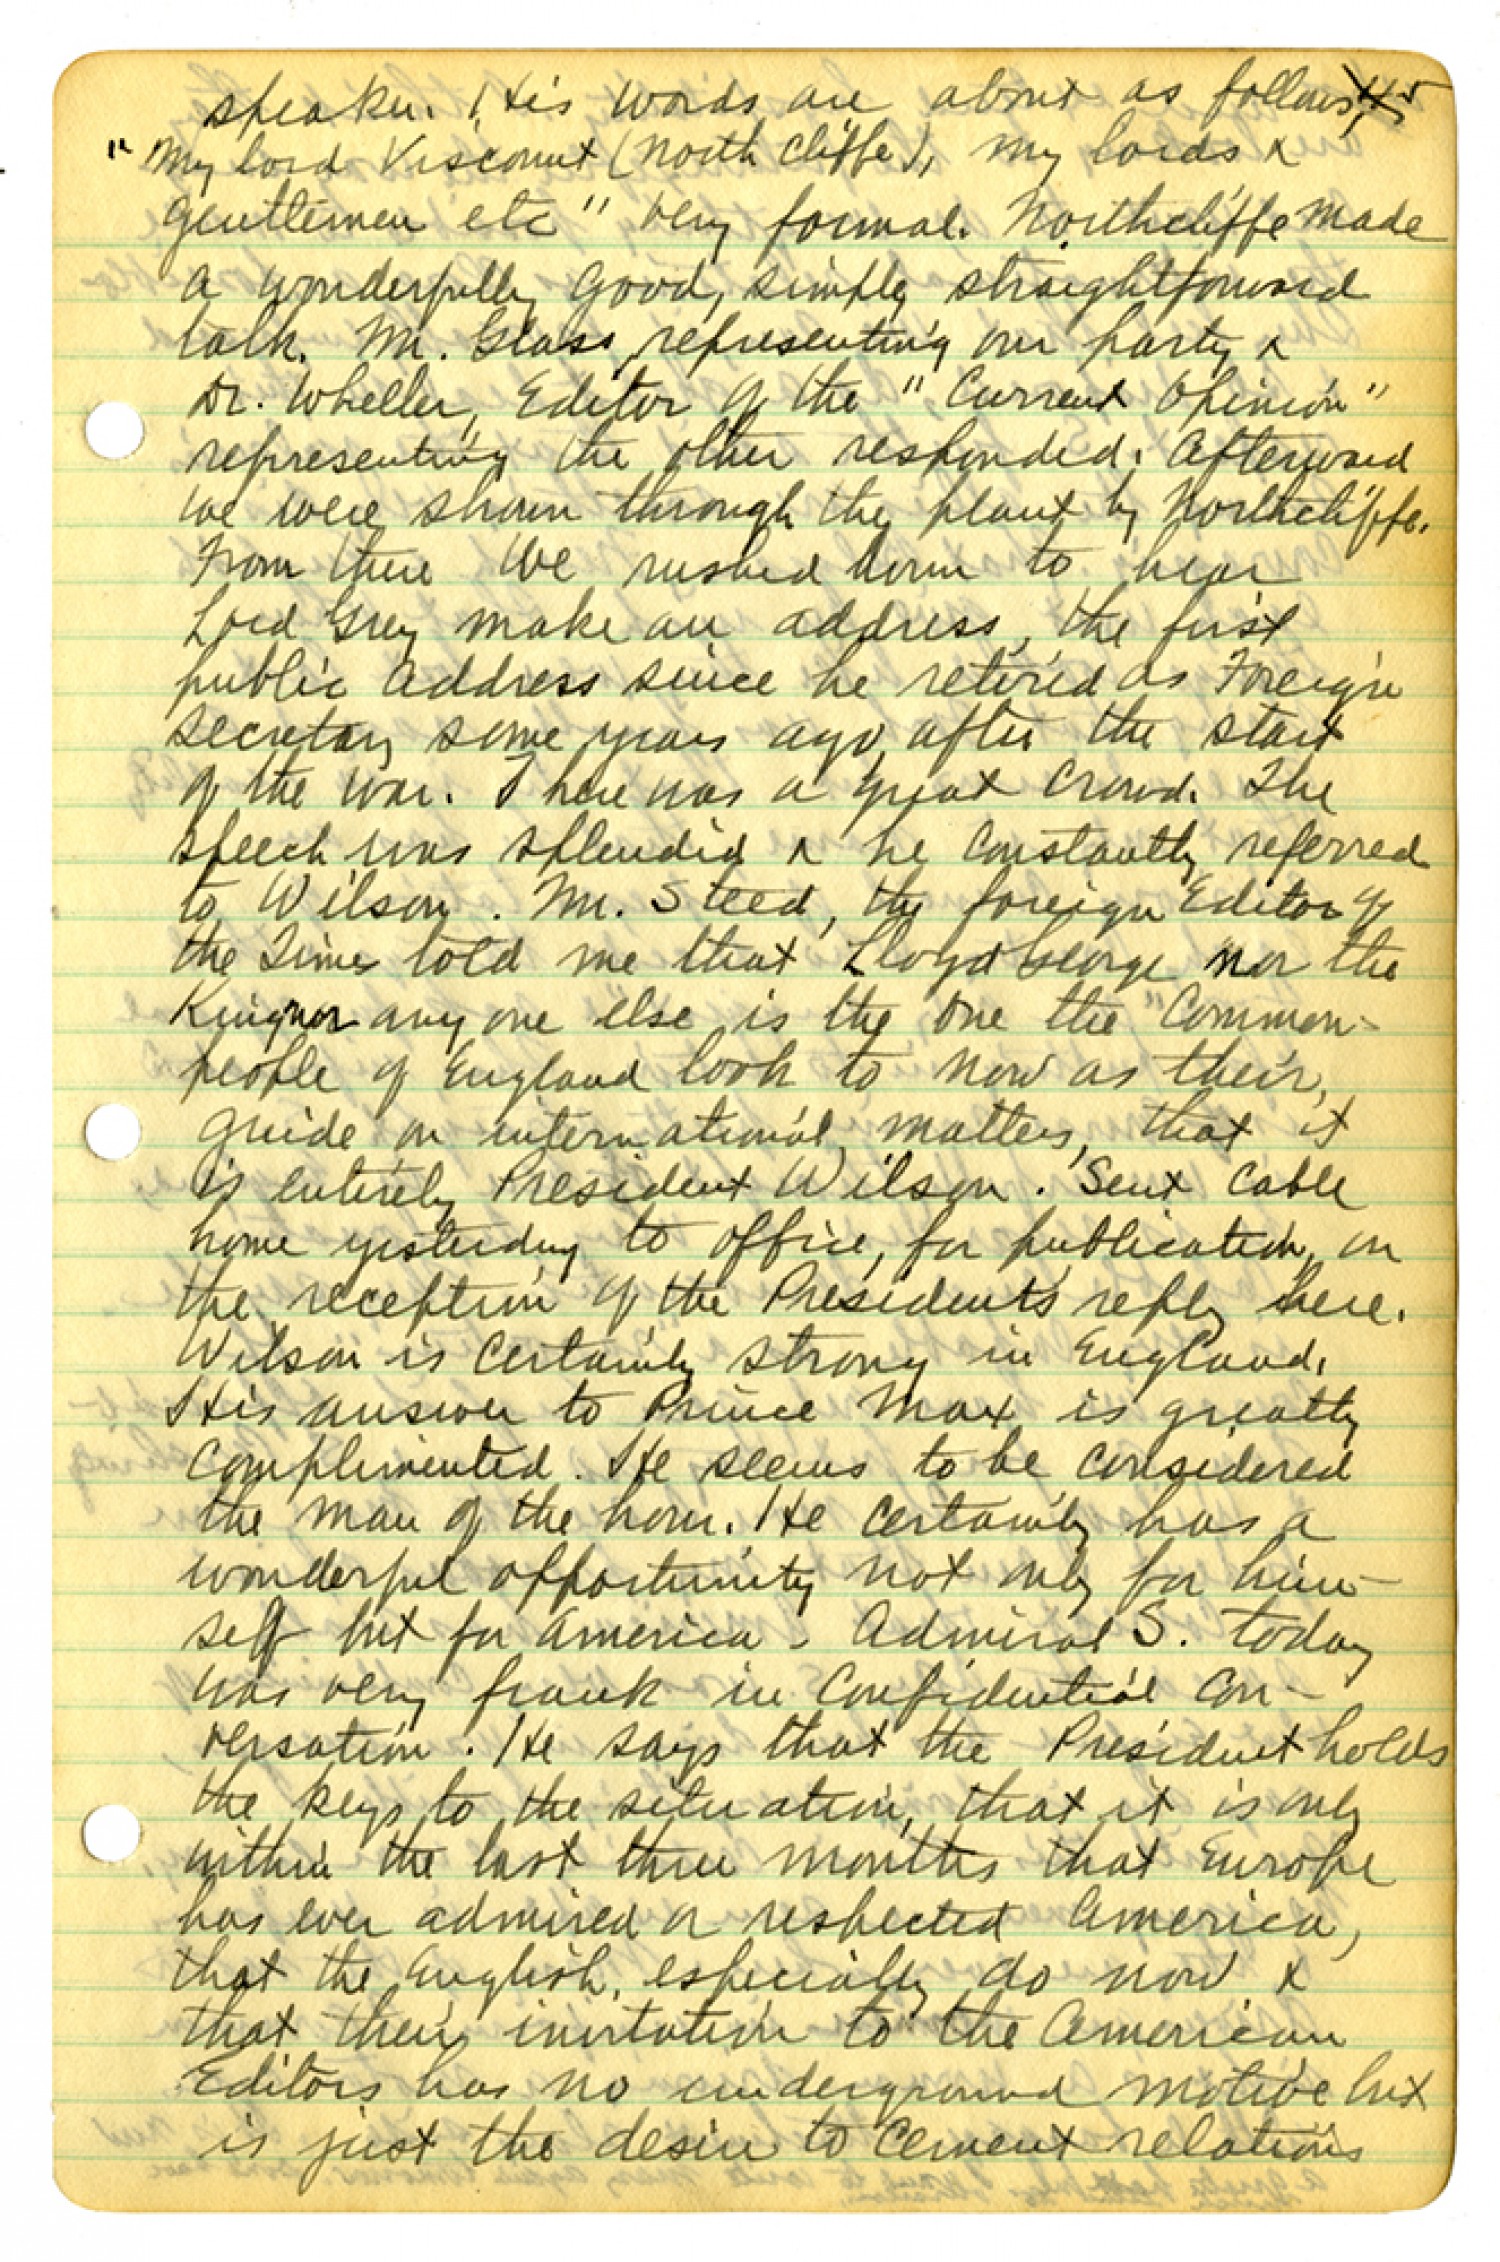 speaker. His words are about as follows,
"My lord Viscount (North Cliffe), my lords &
gentlemen etc" very formal. Northcliffe made
a wonderfully good, simple straightforward
talk. Mr. Glass, representing our party &
Dr. Wheller, Editor of the "Current Opinion"
representing the other responded. Afterward
we were shown through the plant by Northcliffe.
From there we rushed down to hear
Lord Grey make an address, the first
public address since he retired as Foreign
Secretary some years ago, after the start
of the war. There was a great crowd. The
speech was splendid & he constantly referred
to Wilson. Mr. Steed, the foreign Editor of
the Times told me that Lloyd George nor the
King nor any one else is the one the "Common-
people of England look to now as their,
guide on international matters, that it
is entirely President Wilson. Sent cable
home yesterday to office, for publication, on
the reception of the Presidents reply here.
Wilson is certainly strong in England.
His answer to Prince Max is greatly
complimented. He seems to be considered
the man of the hour. He certainly has a
wonderful opportunity not only for him-
self but for America. Admiral S. today
was very frank in confidential con-
versation. He says that the President holds
the keys to the situation, that it is only
within the last three months that Europe
has ever admired or respected America,
that the English, especially do now &
that their invitation to the American
Editors has no underground motive but
is just the desire to cement relations